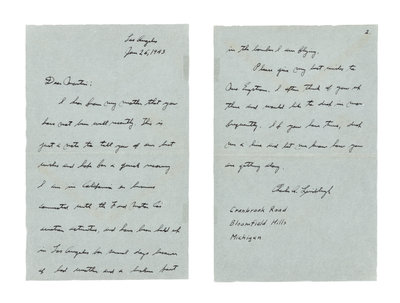 Los Angeles
Jan 26, 1943
Dear Quentin:
I hear from my mother that you
have not been well recently. This is
just a note to tell you of our best
wishes and hope for a quick recovery
I am in California on business
connected with the Ford Motor Co
aviation activities and have been held up
in Los Angeles for several days because
of bad weather and a broken part
2
in the bomber I am flying.
Please give my best wishes to
Mrs.
I often think of you
there and would like to drop in more
frequently. If you have time, send
me a line and let me know how you
are getting along.
Charles A. Lindbergh
Cranbrook Road
Bloomfield Hills
Michigan